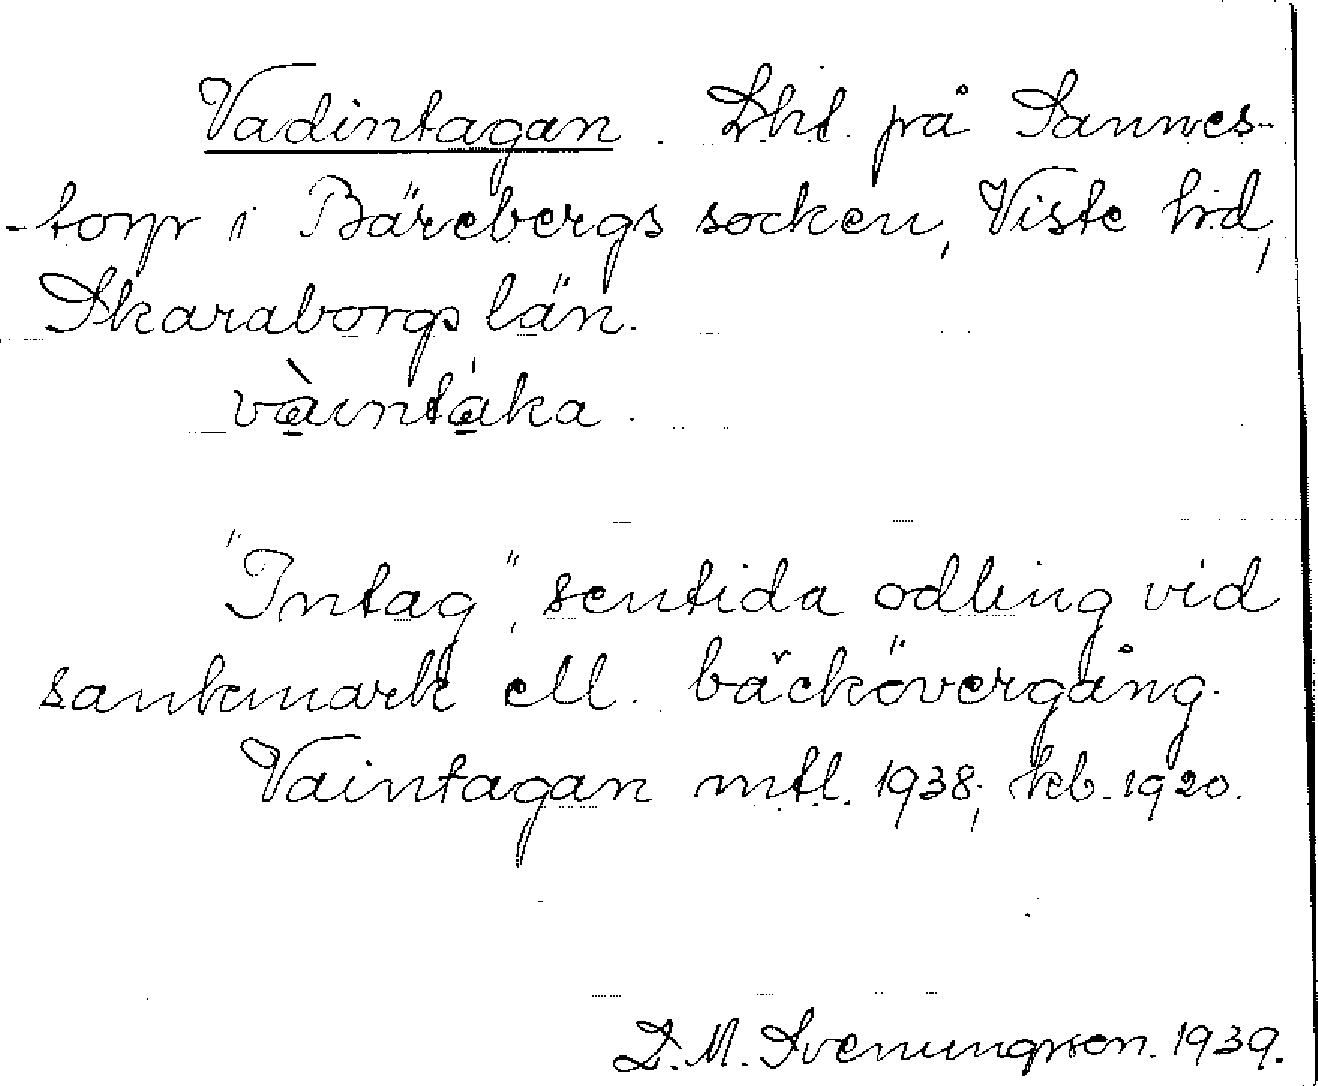 Vadintagan. Lht. på Sannes-
-torp i Bärebergs socken, Viste hd,
Skaraborgs län.
và̱intá̱ka.
"Intag", sentida odling vid
sankmark ell. bäckövergång.
Vaintagan mtl. 1938; keb. 1920.
D. M. Svenungsson. 1939.